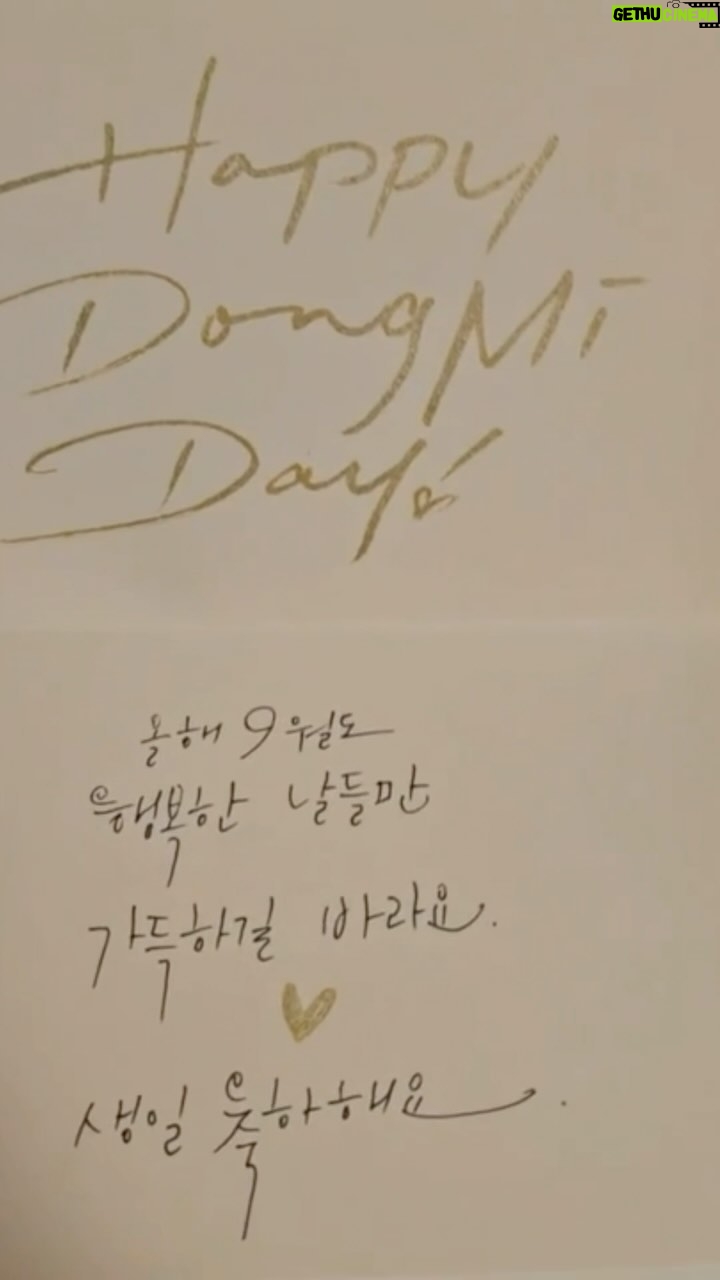 GETHUCINEMA
Happy
Dong Mi
Day!
올해 9월도
행복한 날들만
가득하길 바라요.
생일 축하해요.